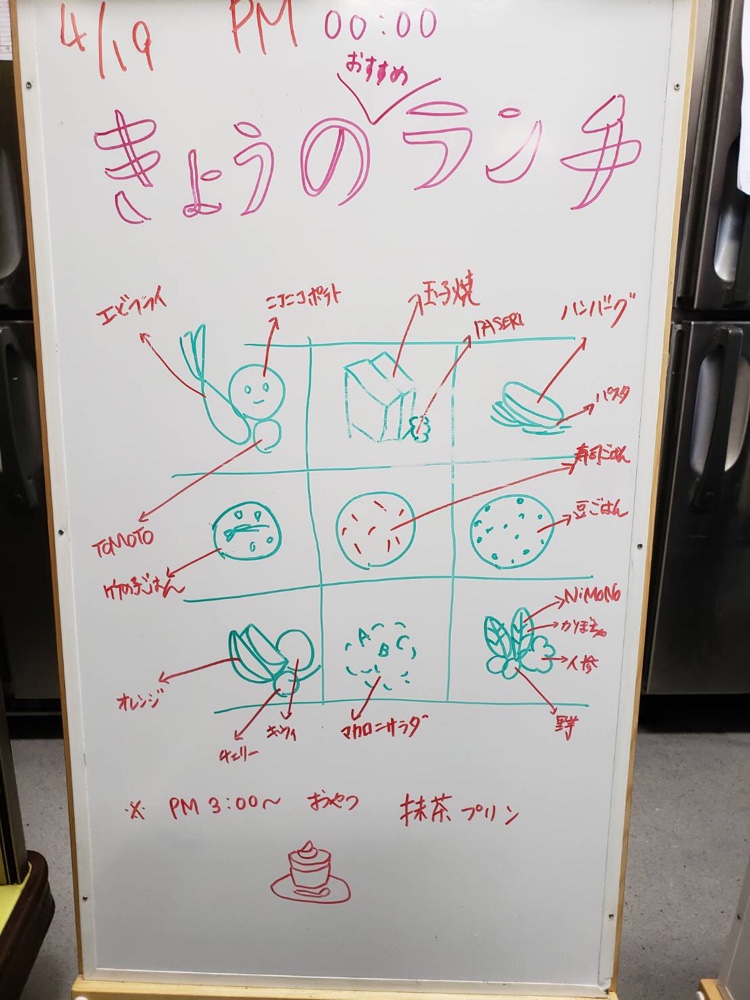 4/19 PM 00:00
おすすめ
きょうのランチ
エビフライ
ニコニコポテト
玉子焼
PASERI
ハンバーグ
パスタ
TOMOTO
竹の子ごはん
寿司ごはん
豆ごはん
NiMONO
かぼちゃ
人参
オレンジ
チェリー
キウイ
マカロニサラダ
※ PM 3:00〜 おやつ 抹茶プリン
A
B
C